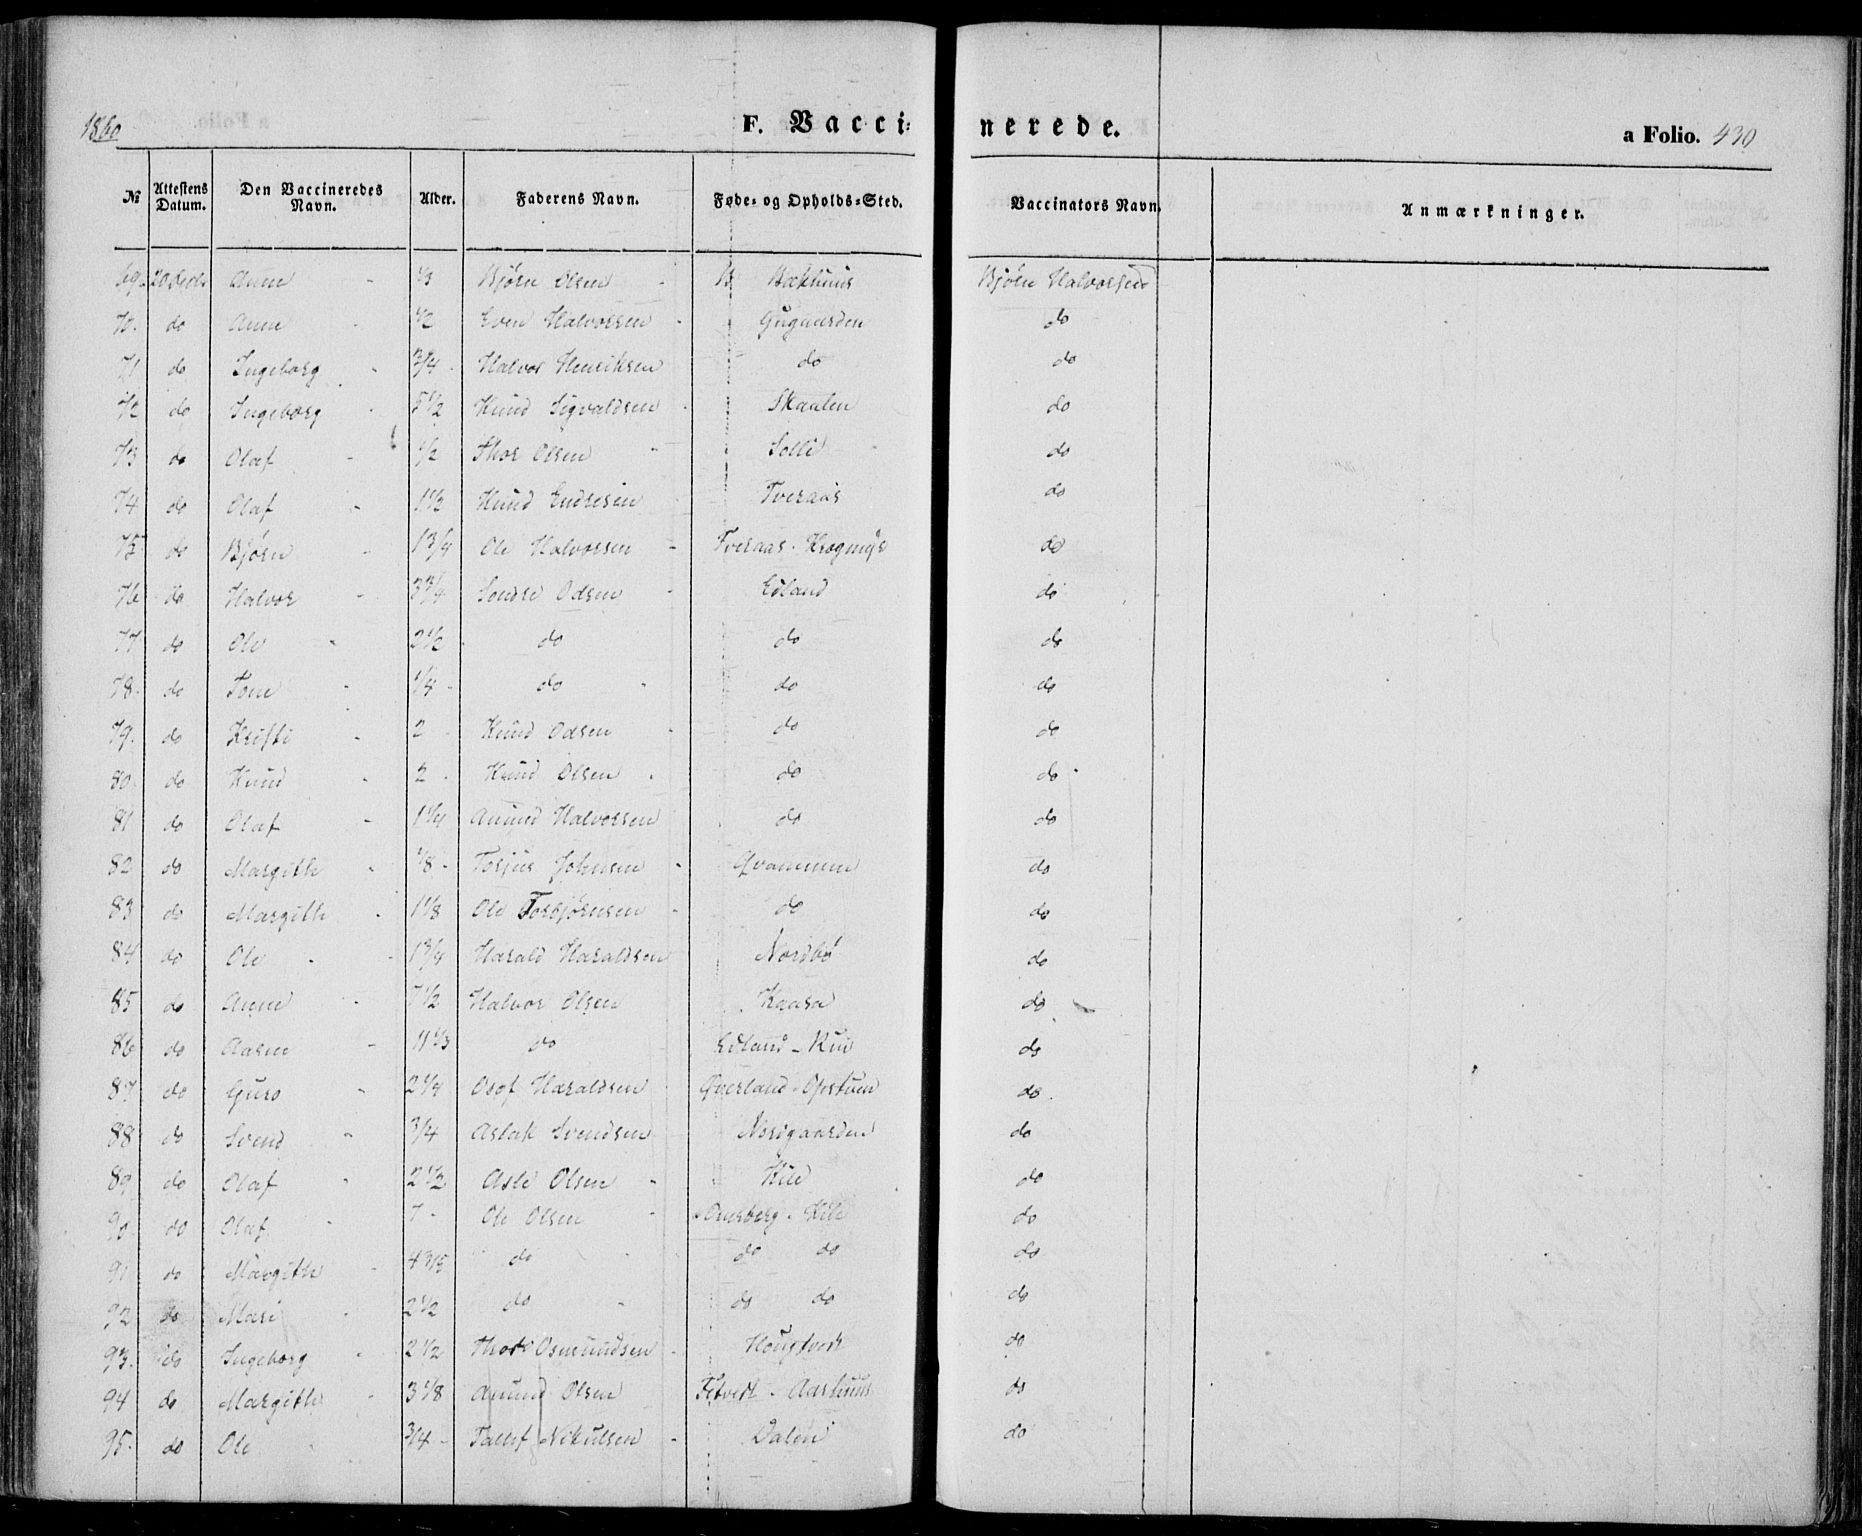 1860 F. Vacci- nerede. a Folio. 430
№ Attestens Datum. Den Vaccineredes Navn. Alder. Faderens Navn. Føde- og Opholds-Sted. Vaccinators Navn. Anmærkninger.
69. 20 Anne 1/3 Bjørn Olsen Bakhuus Bjørn Halvorsen
70. do Anne 1/2 Even Halvorsen Gugaarden do
71 do Ingeborg 3/4 Halvor Henriksen do do
72 do Ingeborg 5 1/2 Knud Sigvaldsen Skaalen do
73 do Olaf 1/2 Thor Olsen Solli do
74 do Olaf 1 1/2 Knud Endresen Tveraas do
75 do Bjørn 1 3/4 Ole Halvorsen Tveraas - Krogmyr do
76 do Halvor 3 3/4 Sondre Odsen Edland do
77 do Ole 2 1/2 do do do
78. do Tone 1/4 do do do
79. do Kristi 2 Knud Odsen do do
80 do Knud 2 Knud Olsen do do
81 do Olaf 1 1/4 Anund Halvorsen do do
82 do Margith 1/8 Torjus Johnsen Qvammen do
83 do Margith 1 1/8 Ole Torbjørnsen do do
84 do Ole 1 3/4 Harald Haraldsen Nordbø do
85 do Anne 7 1/2 Halvor Olsen Kaasa do
86 do Aasne 11 1/3 do Edland - Rui do
87 do Guro 2 1/4 Osof Haraldsen Øverland - Opstuen do
88 do Svend 3/4 Aslak Svendsen Nordgaarden do
89 do Olaf 2 1/2 Asle Olsen Kile do
90 do Olaf 7 Ole Olsen Ousberg - Kile do
91 do Margith 4 3/5 do do do do
92 do Mari 2 1/2 do do do do
93. do Ingeborg 2 1/2 Thor Osmundsen Hougtvedt do
94 do Margith 3 1/8 Anund Olsen - Aashuus do
95. do Ole 3/4 Tallef Nikulsen Dalen do